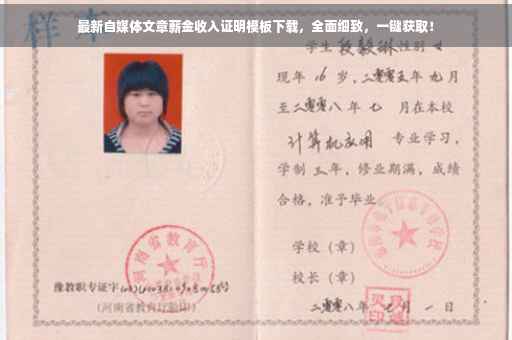 最新自媒体文章薪金收入证明模板下载，全面细致，一键获取！
样本
学生 段毅琳 性别 女
现年 16 岁，二零零五年 九月
至二零零八 年 七 月在本校
计算机应用 专业学习，
学制 三 年，修业期满，成绩
合格，准予毕业
学校（章）
校长（章）
二零零八年 七 月 一 日
河南省教育厅
豫教职专证字
（河南省教育厅验印）